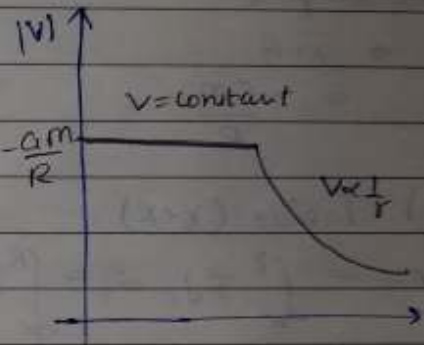 |V|
V=constant
-GM
R
V∝1
r